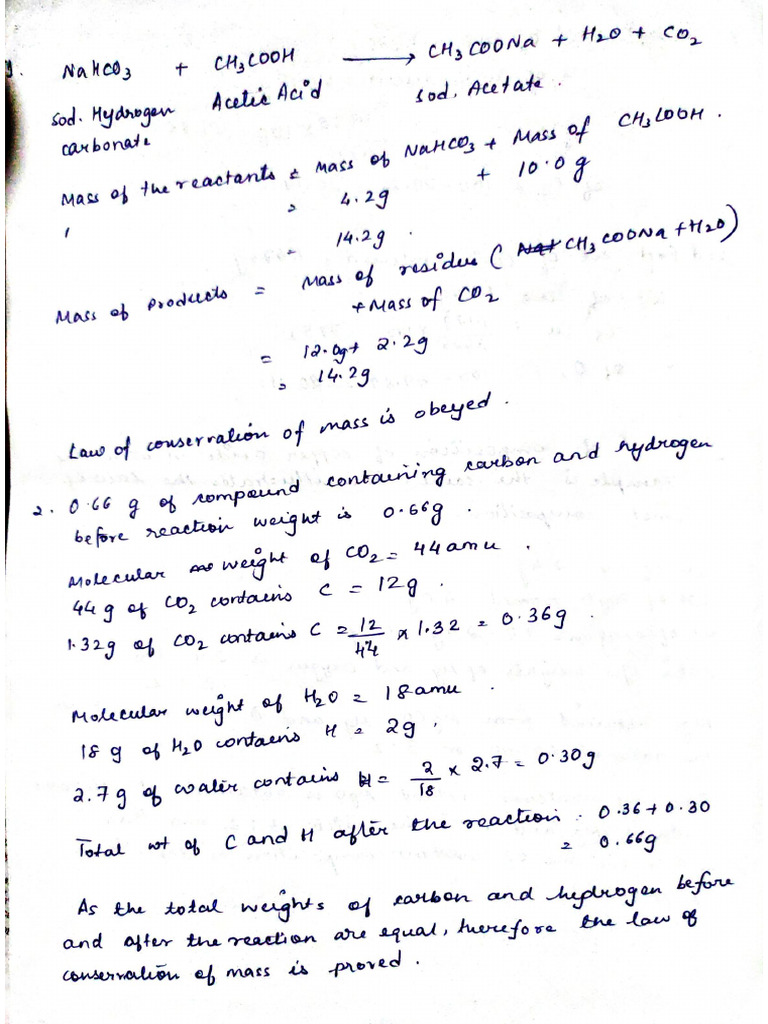 NaHCO3 + CH3COOH ⟶ CH3COONa + H2O + CO2
sod. Hydrogen Acetic Acid sod. Acetate.
carbonate
Mass of the reactants = Mass of NaHCO3 + Mass of CH3COOH.
= 4.2g + 10.0g
= 14.2g.
Mass of Products = Mass of residue (CH3COONa + H2O)
+ Mass of CO2
= 12.0g + 2.2g
= 14.2g
Law of conservation of mass is obeyed.
2. 0.66 g of compound containing carbon and hydrogen
before reaction weight is 0.66g.
Molecular weight of CO2 = 44 amu.
44 g of CO2 contains C = 12g.
1.32g of CO2 contains C = 12/44 × 1.32 = 0.36g.
Molecular weight of H2O = 18 amu.
18 g of H2O contains H = 2g.
2.7 g of water contains H = 2/18 × 2.7 = 0.30g
Total wt of C and H after the reaction. 0.36 + 0.30
= 0.66g
As the total weights of carbon and hydrogen before
and after the reaction are equal, therefore the law of
conservation of mass is proved.